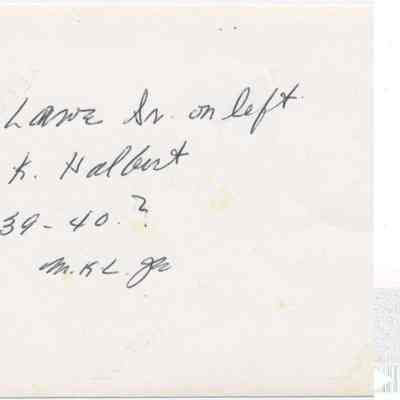 Lowe Sr. on left.
K. Halbert
39-40.?
M.K.L. Jr